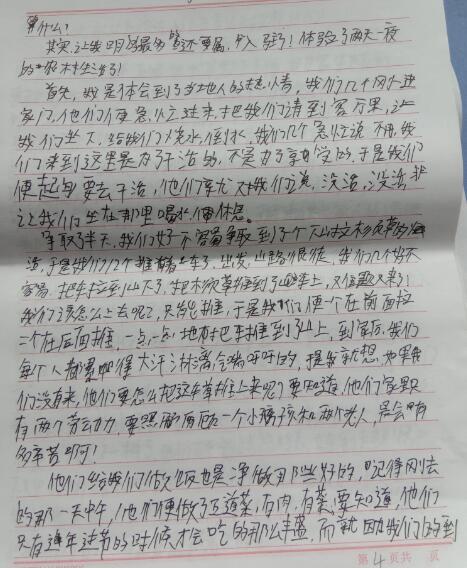 算什么?
其实,让我明白最多的还要属,入驻了!体验了两天一夜
的农村生活了!
首先,我是体会到了当地人的热情,我们几个刚进
家门,他们便急忙过来,把我们请到客厅里,让
我们坐下,给我们又烧水,倒水,我们几个急忙说不用,我
们来到这里是为了干活的,不是为了享受的,于是我们
便起身要去干活,他们直忙对我们说,没活,没活,非
让我们坐在那里喝水,便休息。
争取了半天,我们好不容易争取到了个
活,于是我们几个推着车子,出发,山路很陡,我们几个好不
容易把车拉到山下了,把木须草弄到了车上,又但题又来了!
我们该怎么上去呢?只能推,于是我们便一个在前面拉
二个在后面推,一点一点地才把车推到了山上,到家后,我们
每个人都累得大汗淋漓气喘吁吁的,提我就想,如果我
们没有来,他们要怎么把这车草推上来呢?要知道,他们家里只
有两个劳动力,要照顾一个小孩和两个老人,是会有
多辛苦啊!
他们给我们做饭也是净做那些好的,记得刚去
的那一天中午,他们便做了五道菜,有肉,有菜,要知道,他们
只有过年过节的时候才会吃的那么丰盛,而就因我们的到
第4页共 页